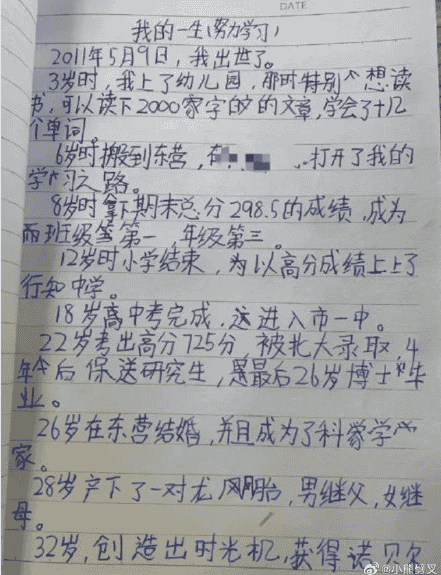 DATE
我的一生(努力学习)
2011年5月9日,我出世了。
3岁时,我上了幼儿园,那时特别想读
书,可以读下2000家字的的文章,学会了十几
个单词。
6岁时搬到东营,在 . 打开了我的
学习之路。
8岁时拿下期末总分298.5的成绩,成为
班级第一,年级第三。
12岁时小学结束,为以高分成绩上上了
行知中学。
18岁高中考完成,进入市一中。
22岁考出高分725分,被北大录取,4
年后保送研究生,最后26岁博士毕
业。
26岁在东营结婚,并且成为了科家学
家。
28岁产下了一对龙凤胎,男继父,女继
母。
32岁,创造出时光机,获得诺贝尔
@小熊剪叉